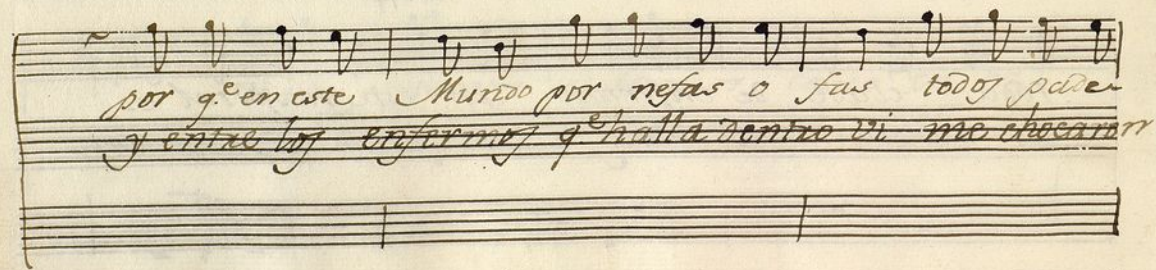 por q.e en este Mundo por nefas o fas todos pade
y entre los enfermos q.e halla dentro vi me chocaron